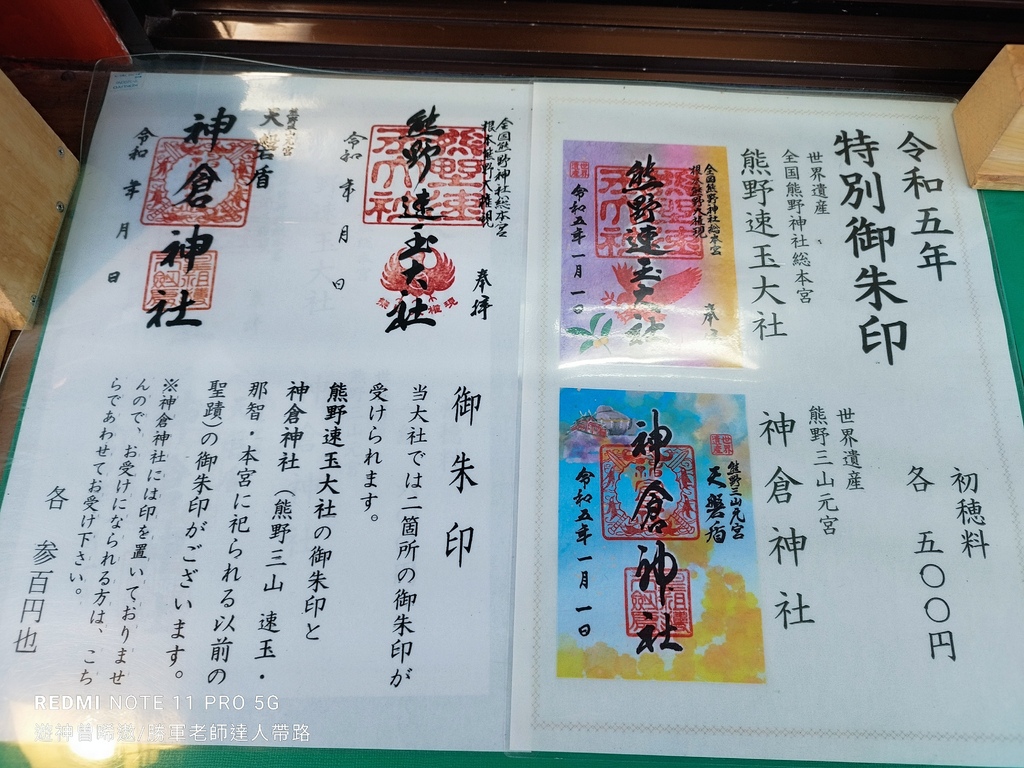 令和五年
特別御朱印
世界遺産
全国熊野神社総本宮
熊野速玉大社
世界遺産
熊野三山元宮
神倉神社
初穂料
各 五〇〇円
全国熊野神社総本宮
根本熊野大権現
奉拝
熊野速玉大社
令和五年一月一日
世界遺産
熊野三山元宮
天磐盾
世界遺産
神倉神社
令和五年一月一日
全国熊野神社総本宮
根本熊野大権現
奉拝
熊野速玉大社
令和 年 月 日
天磐盾
神倉神社
令和 年 月 日
御朱印
当大社では二箇所の御朱印が
受けられます。
熊野速玉大社の御朱印と
神倉神社 (熊野三山 速玉・
那智・本宮に祀られる以前の
聖蹟)の御朱印がございます。
※神倉神社には印を置いておりませ
んので、お受けになられる方は、こち
らであわせてお受け下さい。
各 参百円也
REDMI NOTE 11 PRO 5G